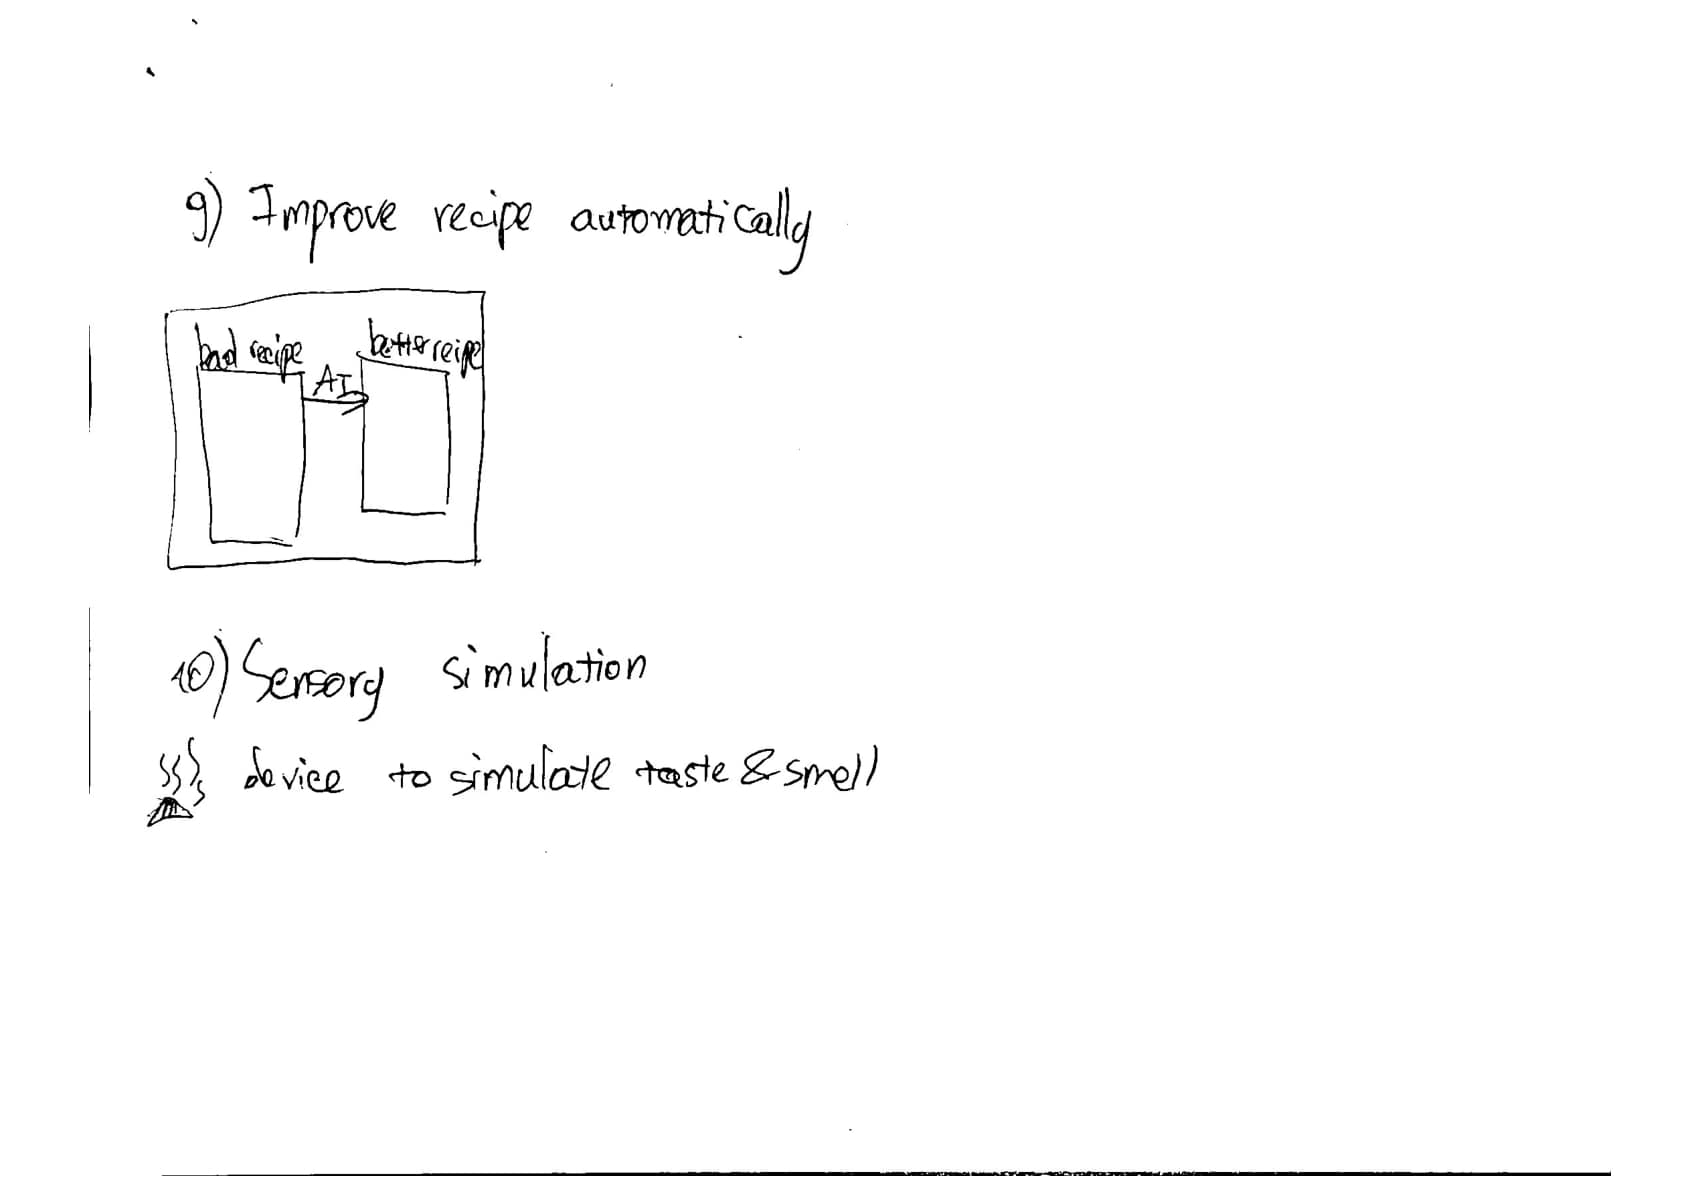 9) Improve recipe automatically
bad recipe
better reipe
AI
10) Sensory simulation
device to simulate taste & smell